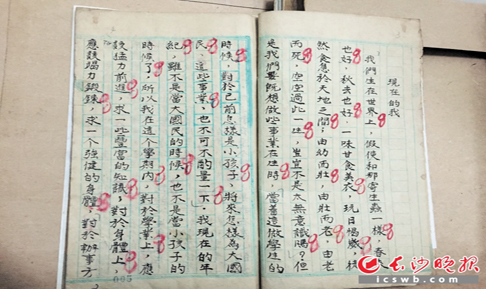 現在的我
我們生在世界上，假使和那寄生蟲一樣，春
也好，秋去也好，一味甘食美衣，玩日愒歲，
然食息於天地之間，由幼而壯，由壯而老，由老
而死，空空過此一生，豈不是太無意識嗎？但
是我們要既想做些事業在這時，當著這做學生的
時候，對於已前怎樣是小孩子，將來怎樣為大國
民，這些事業，也不可不酌量一下，我現在的年
紀，雖不是當大國民的時候，也不是當小孩子的
時候了，所以我在這個學校內，對於學業上，應
該猛力前進，求一些豐富的知識，對於身體上，
應該竭力鍛鍊，求一個強健的身體，對於辦事才
長沙晚报